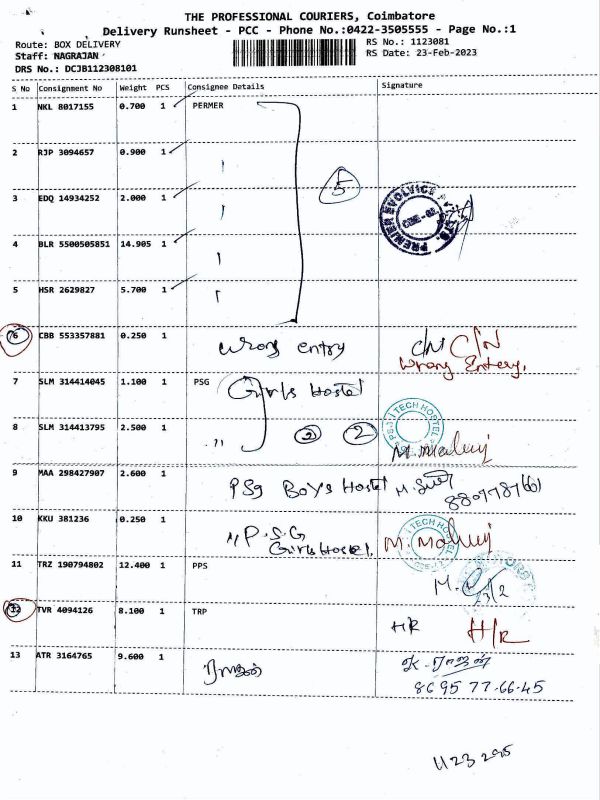 THE PROFESSIONAL COURIERS, Coimbatore
Delivery Runsheet - PCC - Phone No.:0422-3505555 - Page No.:1
Route: BOX DELIVERY
RS No.: 1123081
Staff: NAGRAJAN
RS Date: 23-Feb-2023
DRS No.: DCJB112308101
S No Consignment No Weight PCS Consignee Details Signature
1 NKL 8017155 0.700 1 PERMER
2 RJP 3094657 0.900 1
5
3 EDQ 14934252 2.000 1
4 BLR 5500505851 14.905 1
5 HSR 2629827 5.700 1
6 CBB 553357881 0.250 1 Wrong entry C/N C/N
Wrong Entery.
7 SLM 314414045 1.100 1 PSG Girls Hostel
8 SLM 314413795 2.500 1 ,, 2 2
9 MAA 298427907 2.600 1 PSG Boy's Hostel
10 KKU 381236 0.250 1 P.S.G
Girls Hostel.
11 TRZ 190794802 12.400 1 PPS
12 TVR 4094126 8.100 1 TRP HR H/R
13 ATR 3164765 9.600 1 ராஜன் K. ராஜன்
8695 77-66-45
1123295